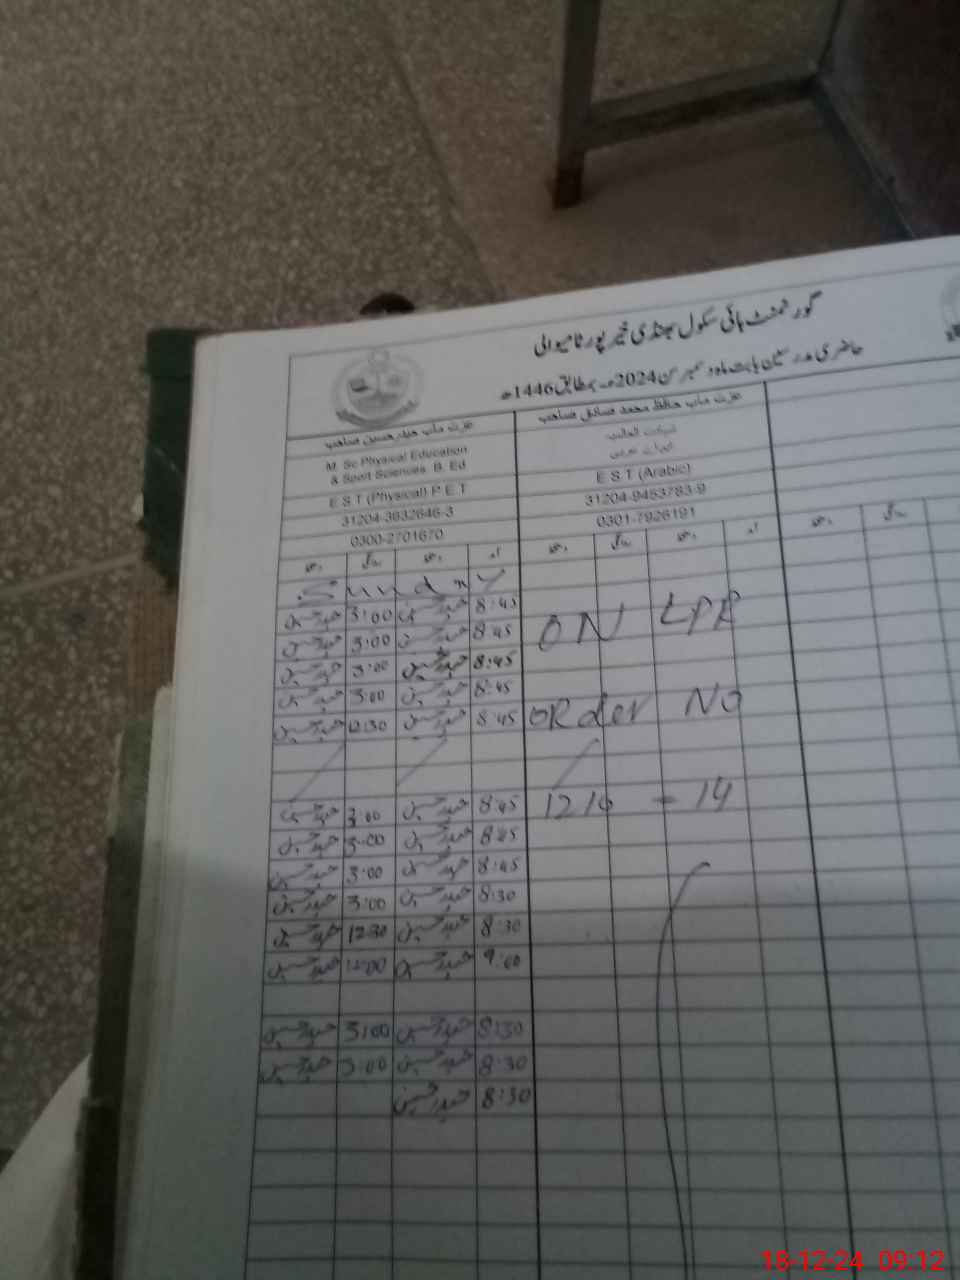 گورنمنٹ ہائی سکول جھنڈی خیر پور ٹامیوالی
حاضری مدرسین بابت ماہ دسمبر سن 2024ء بمطابق 1446ھ
عزت مآب حیدر حسین صاحب
M. Sc Physical Education
& Sport Sciences B. Ed
E S T (Physical) P E T
31204-3632646-3
0300-2701670
عزت مآب حافظ محمد صادق صاحب
E S T (Arabic)
31204-9453783-9
0301-7926191
Sunday
حیدر حسین 3:00 حیدر حسین 8:45
حیدر حسین 3:00 حیدر حسین 8:45
حیدر حسین 3:00 حیدر حسین 8:45
حیدر حسین 3:00 حیدر حسین 8:45
حیدر حسین 12:30 حیدر حسین 8:45
حیدر حسین 3:00 حیدر حسین 8:45
حیدر حسین 3:00 حیدر حسین 8:45
حیدر حسین 3:00 حیدر حسین 8:45
حیدر حسین 3:00 حیدر حسین 8:30
حیدر حسین 12:30 حیدر حسین 8:30
حیدر حسین 12:00 حیدر حسین 9:00
حیدر حسین 3:00 حیدر حسین 8:30
حیدر حسین 3:00 حیدر حسین 8:30
حیدر حسین 8:30
ON LPR
ORder NO
1214 - 14
18-12-24 09:12